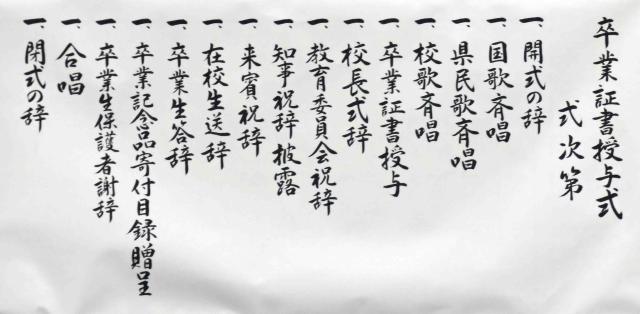 卒業証書授与式
式次第
一、開式の辞
一、国歌斉唱
一、県民歌斉唱
一、校歌斉唱
一、卒業証書授与
一、校長式辞
一、教育委員会祝辞
一、知事祝辞披露
一、来賓祝辞
一、在校生送辞
一、卒業生答辞
一、卒業記念品寄付目録贈呈
一、卒業生保護者謝辞
一、合唱
一、閉式の辞